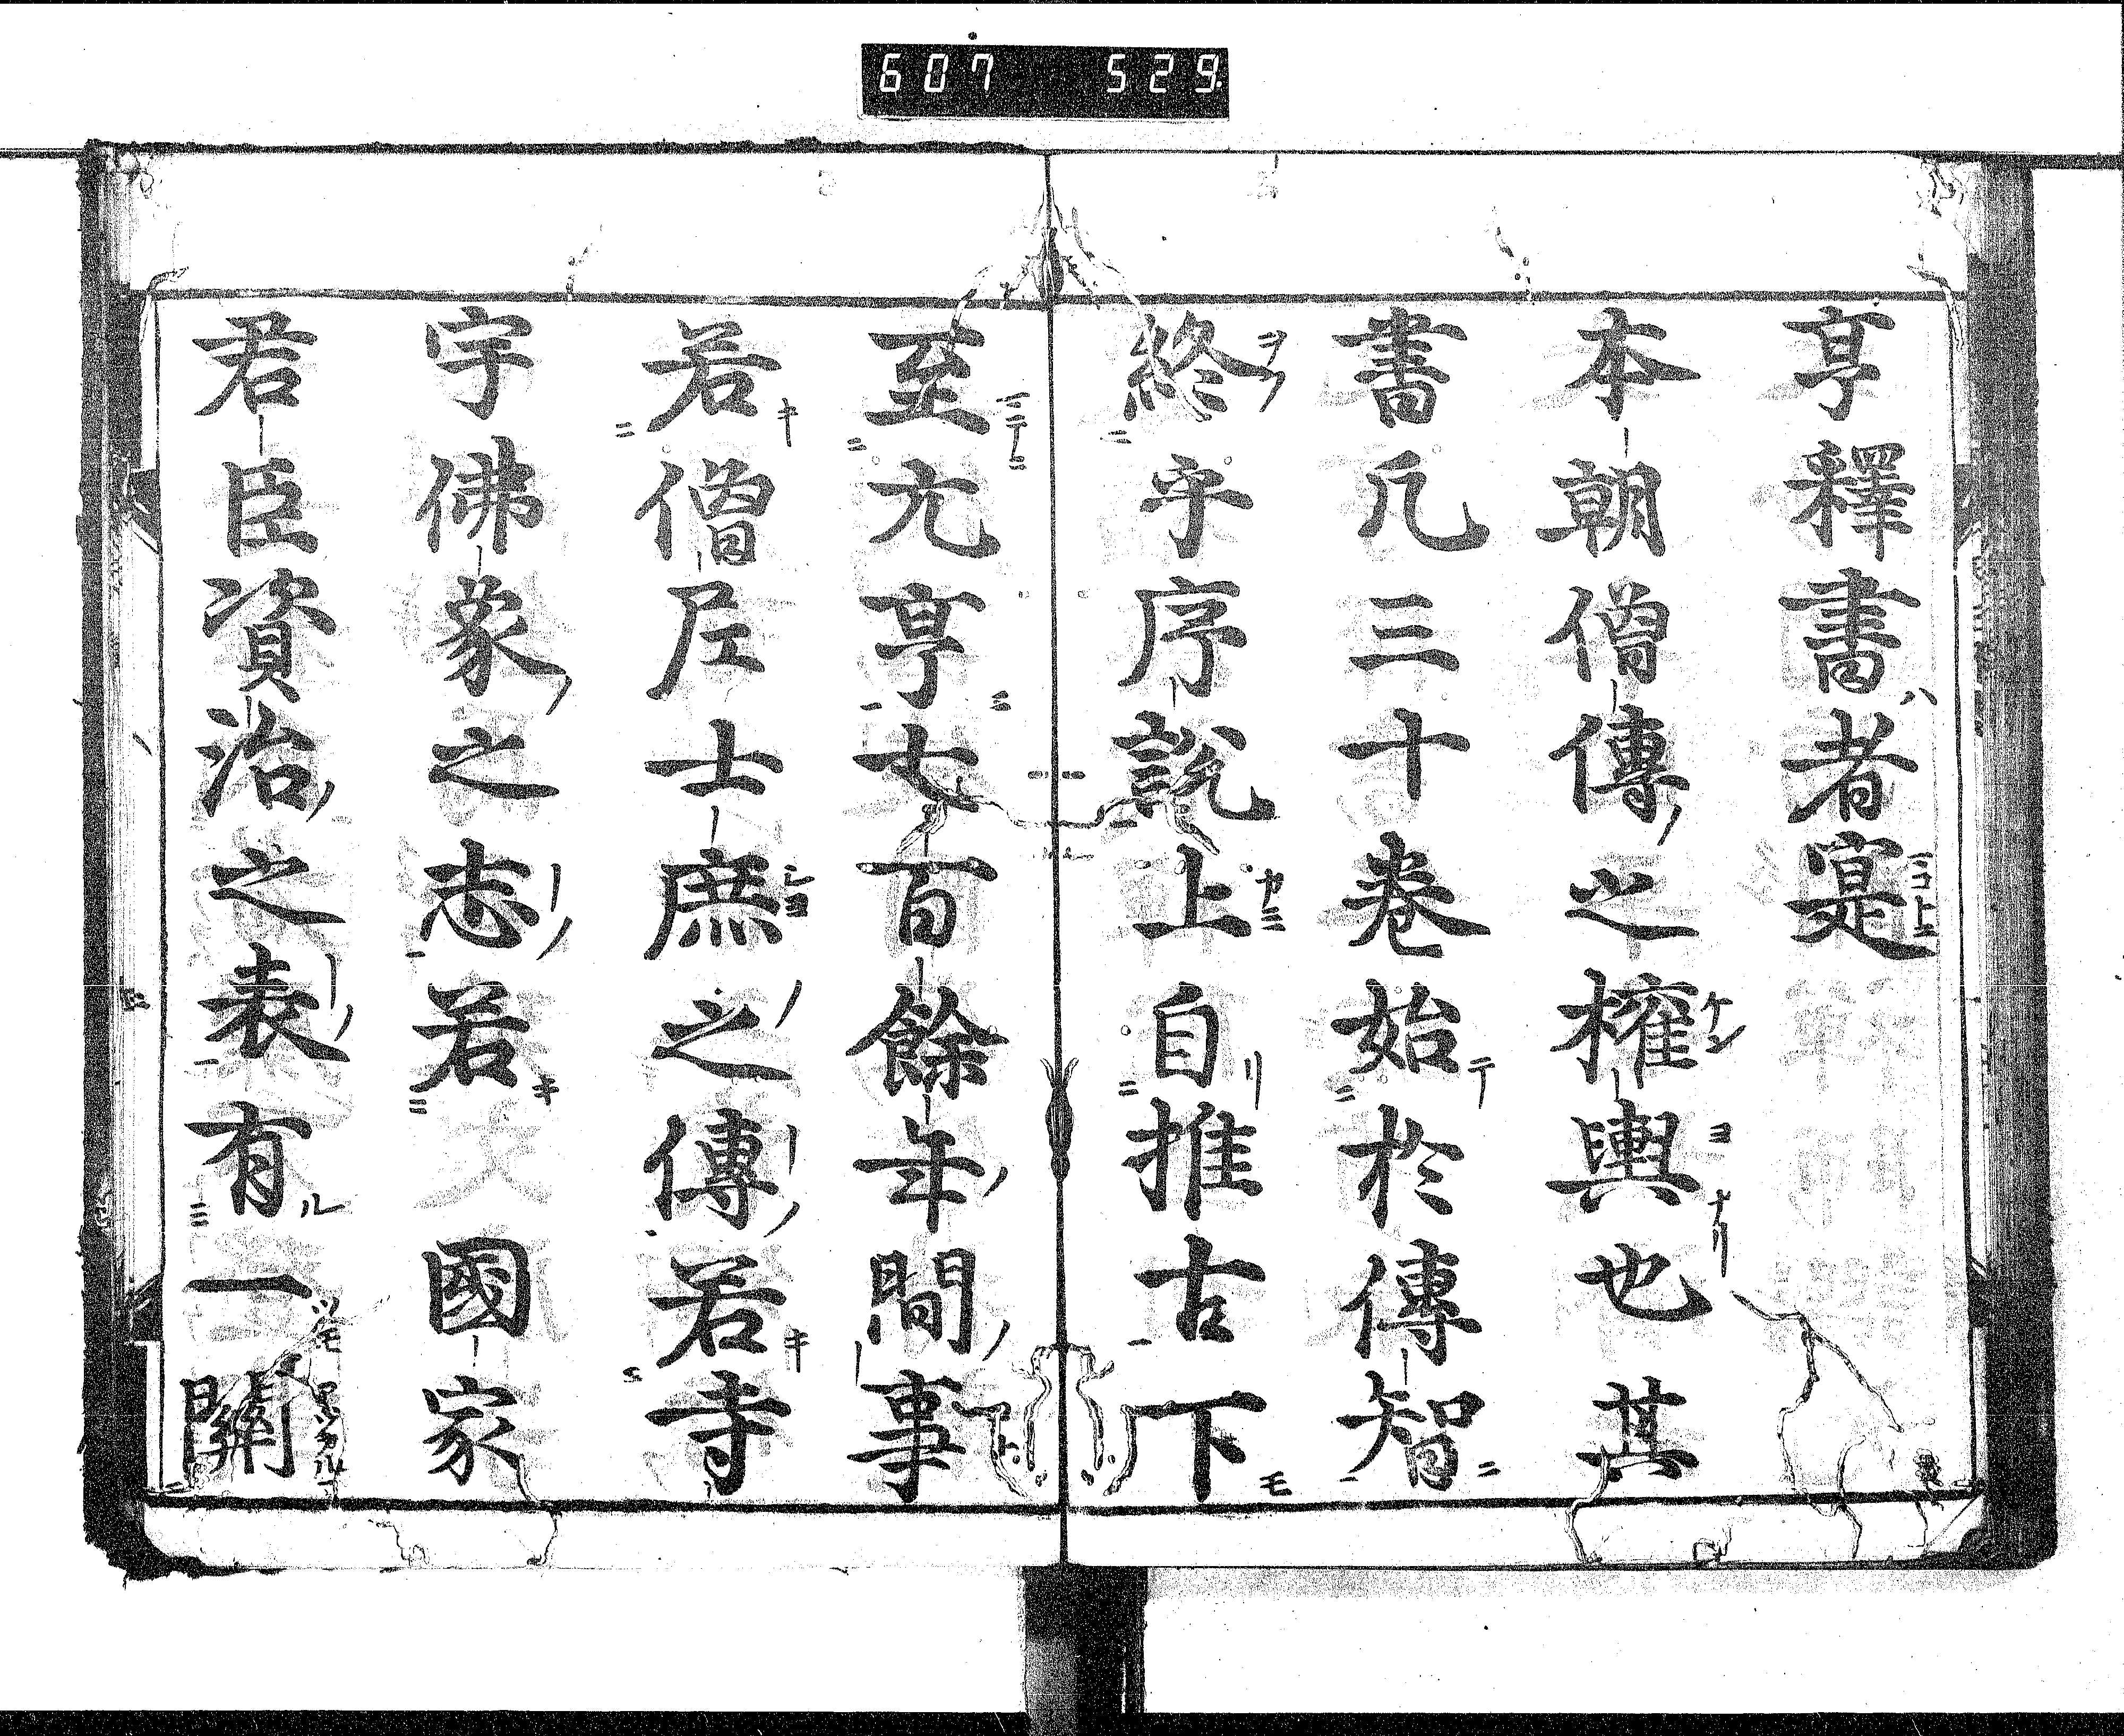 607 529
亨釋書者寔
本朝僧傳之權輿也其
書凡三十卷始於傳智
終乎序說上自推古下
至元亨七百餘年間事
若僧尼士庶之傳若寺
宇佛象之志若國家
君臣資治之表有一關